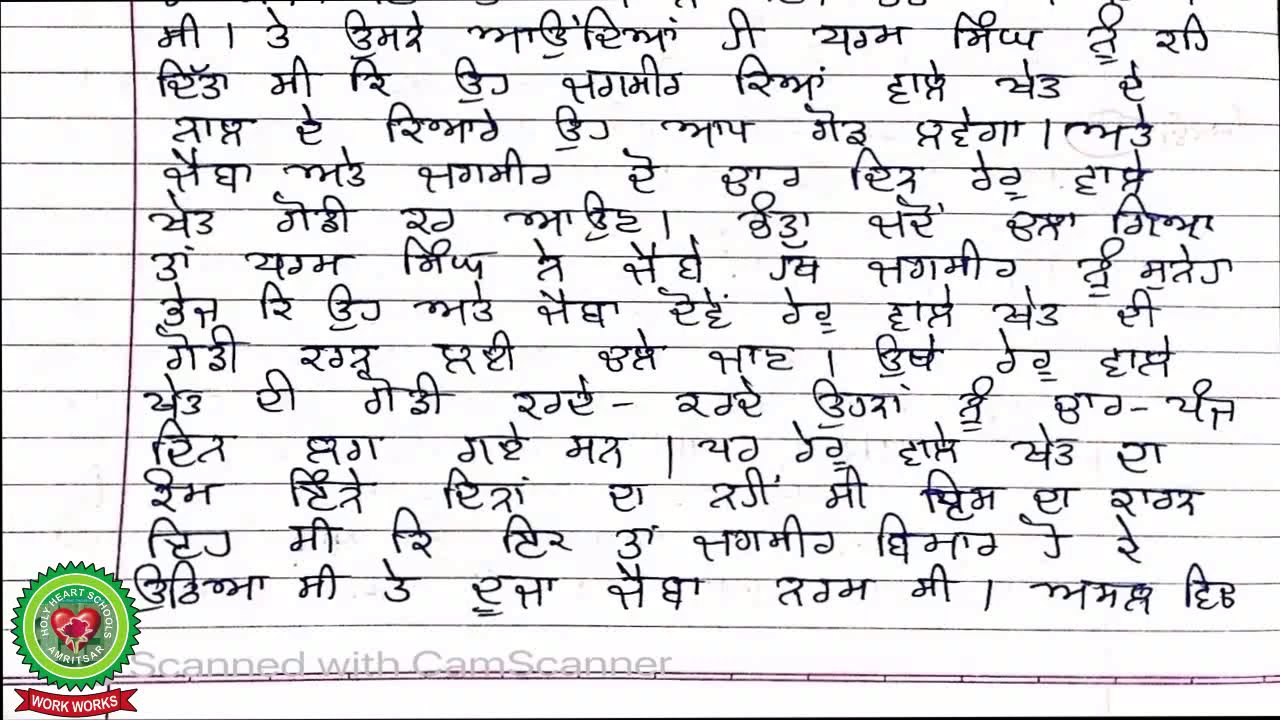 ਸੀ। ਤੇ ਉਸਨੇ ਆਉਂਦਿਆਂ ਹੀ ਧਰਮ ਸਿੰਘ ਨੂੰ ਕਹਿ
ਦਿੱਤਾ ਸੀ ਕਿ ਉਹ ਜਗਸੀਰ ਕਿਆਂ ਵਾਲੇ ਖੇਤ ਦੇ
ਨਾਲ ਦੇ ਕਿਆਰੇ ਉਹ ਆਪ ਗੋਡ ਲਵੇਗਾ। ਅਤੇ
ਜੈਬਾ ਅਤੇ ਜਗਸੀਰ ਦੋ ਚਾਰ ਦਿਨ ਰੇਰੂ ਵਾਲੇ
ਖੇਤ ਗੋਡੀ ਕਰ ਆਉਣ। ਭੰਤਾ ਜਦੋਂ ਚਲਾ ਗਿਆ
ਤਾਂ ਧਰਮ ਸਿੰਘ ਨੇ ਜੈਬੇ ਹਥ ਜਗਸੀਰ ਨੂੰ ਸੁਨੇਹਾ
ਭੇਜ ਕਿ ਉਹ ਅਤੇ ਜੈਬਾ ਦੋਵੇਂ ਰੇਰੂ ਵਾਲੇ ਖੇਤ ਦੀ
ਗੋਡੀ ਕਰਨ ਲਈ ਚਲੇ ਜਾਣ। ਉਥੇ ਰੇਰੂ ਵਾਲੇ
ਖੇਤ ਦੀ ਗੋਡੀ ਕਰਦੇ-ਕਰਦੇ ਉਹਨਾਂ ਨੂੰ ਚਾਰ-ਪੰਜ
ਦਿਨ ਲਗ ਗਏ ਸਨ। ਪਰ ਰੇਰੂ ਵਾਲੇ ਖੇਤ ਦਾ
ਕੰਮ ਇੰਨੇ ਦਿਨਾਂ ਦਾ ਨਹੀਂ ਸੀ ਇਸ ਦਾ ਕਾਰਨ
ਇਹ ਸੀ ਕਿ ਇਕ ਤਾਂ ਜਗਸੀਰ ਬਿਮਾਰ ਹੋ ਕੇ
ਉਠਿਆ ਸੀ ਤੇ ਦੂਜਾ ਜੈਬਾ ਨਰਮ ਸੀ। ਅਸਲ ਵਿਚ
HOLY HEART SCHOOLS
AMRITSAR
WORK WORKS
Scanned with CamScanner